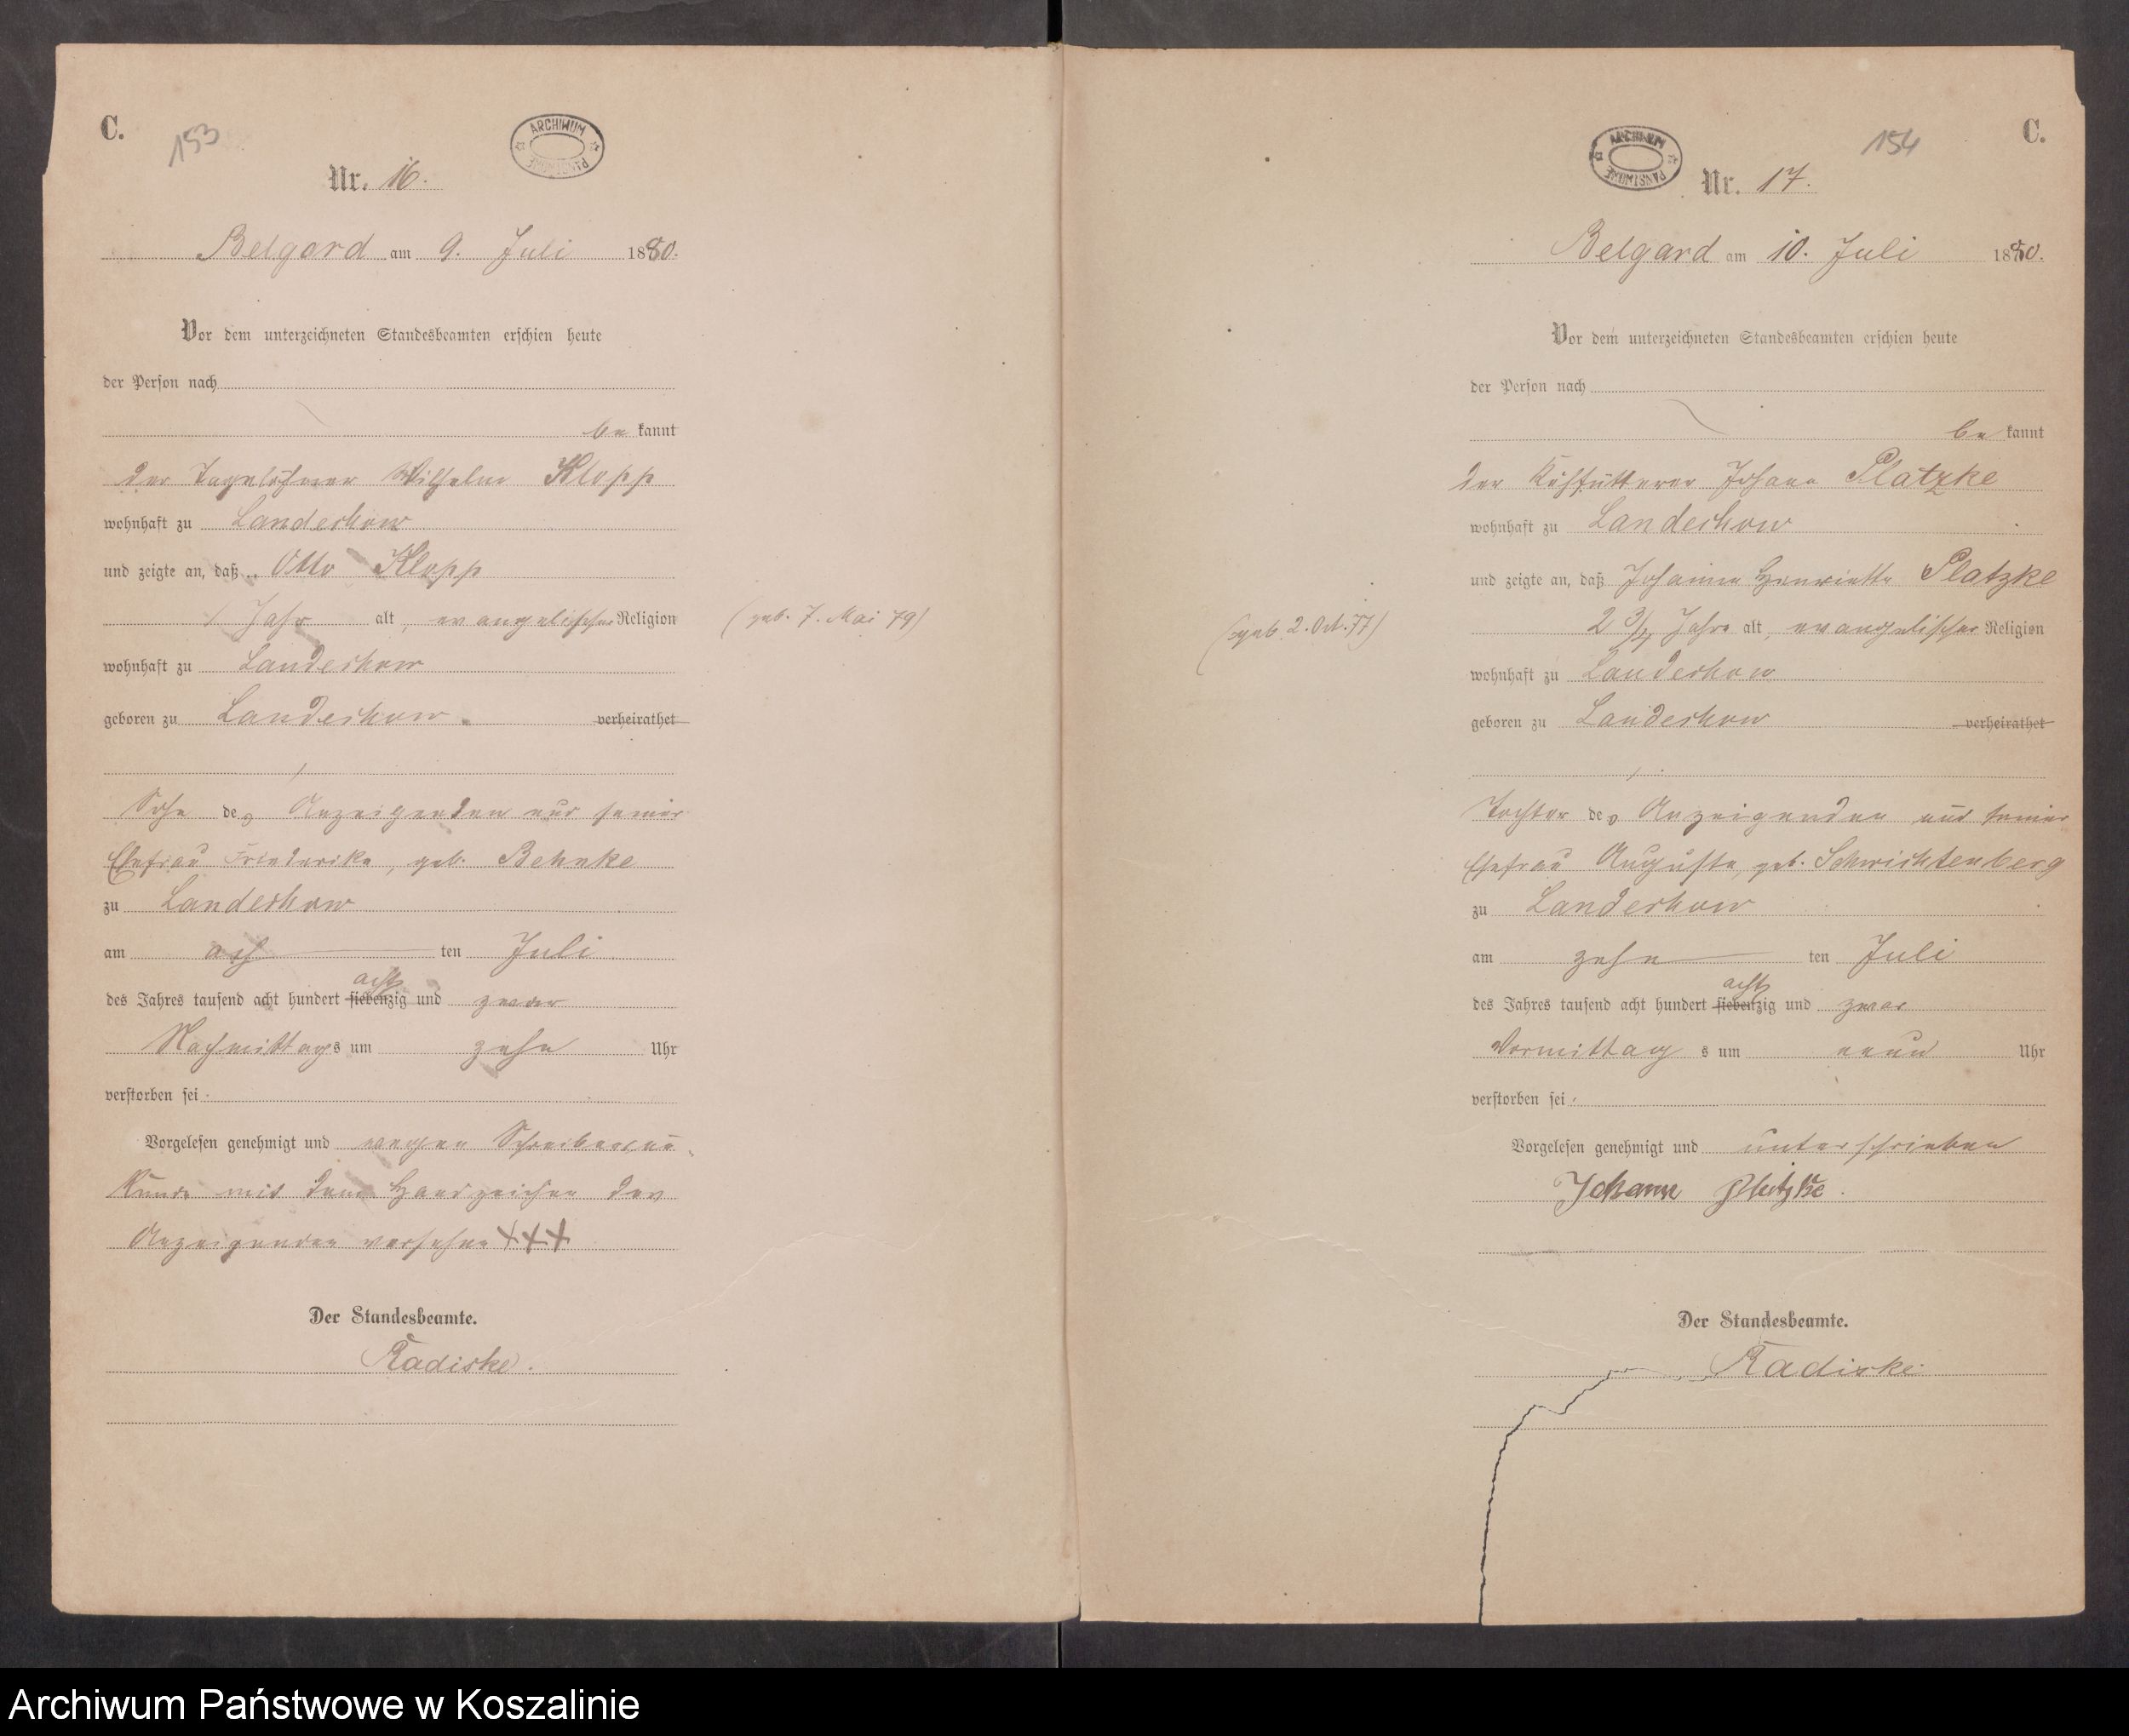 C.
153
ARCHIWUM PAŃSTWOWE
Nr. 16.
Belgard am 9. Juli 1880.
Vor dem unterzeichneten Standesbeamten erschien heute
der Person nach
be kannt
der Tagelöhner Wilhelm Klopp
wohnhaft zu Landechow
und zeigte an, daß Otto Klopp
1 Jahr alt, evangelischer Religion (geb. 7. Mai 79)
wohnhaft zu Landechow
geboren zu Landechow verheirathet
Sohn des Anzeigenden und seiner
Ehefrau Friederike, geb. Behnke
zu Landechow
am ach ten Juli
des Jahres tausend acht hundert siebenzig und zwar
acht
Nachmittags um zehn Uhr
verstorben sei.
Vorgelesen genehmigt und wegen Schreibensun-
kunde mit dem Handzeichen des
Anzeigenden versehen XXX
Der Standesbeamte.
Radiske.
C.
154
ARCHIWUM PAŃSTWOWE
Nr. 17.
Belgard am 10. Juli 1880.
Vor dem unterzeichneten Standesbeamten erschien heute
der Person nach
be kannt
der Kuhfütterer Johann Platzke
wohnhaft zu Landechow
und zeigte an, daß Johanna Henriette Platzke
(geb. 2. Oct. 77) 2 3/4 Jahre alt, evangelischer Religion
wohnhaft zu Landechow
geboren zu Landechow verheirathet
Tochter des Anzeigenden und seiner
Ehefrau Auguste, geb. Schwichtenberg
zu Landechow
am zehn ten Juli
des Jahres tausend acht hundert siebenzig und zwar
acht
Vormittag s um neun Uhr
verstorben sei.
Vorgelesen genehmigt und unterschrieben
Johann Platzke.
Der Standesbeamte.
Radiske.
Archiwum Państwowe w Koszalinie